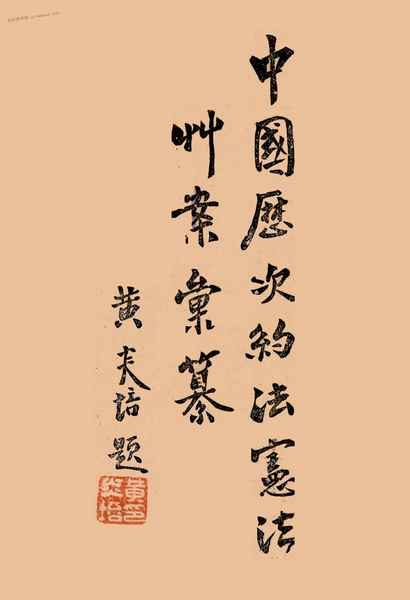 中國歷次約法憲法
艸案彙纂
黄炎培題
黄炎培印